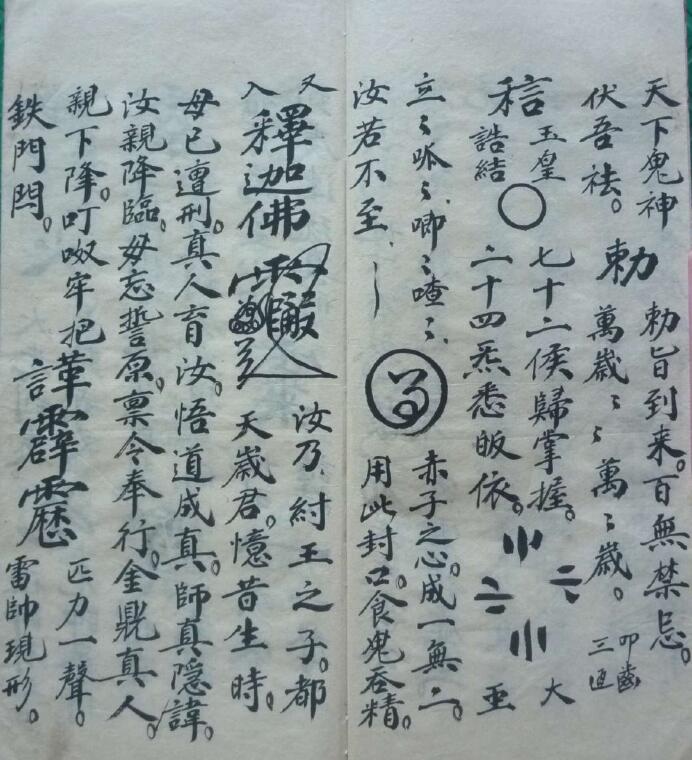 天下鬼神
伏吾祛。
勅
勅旨到来。百無禁忌。
萬歲〻萬〻歲。
叩齒
三通
玉皇
誥結
七十二候歸掌握。
二十四炁悉皈依。
大
立〻呱〻唧〻喳〻、
汝若不至、
赤子之心。成一無二。
用此封口。食鬼吞精。
又
入
釋迦佛
汝乃紂王之子。都
天歲君。憶昔生時。
母已遭刑。真人育汝。悟道成真。師真隱諱。
汝親降臨。毋忘誓原。禀令奉行。金鼎真人。
親下降。叮呶牢把
鉄門閂。
霹靂
匹力一聲。
雷帥現形。